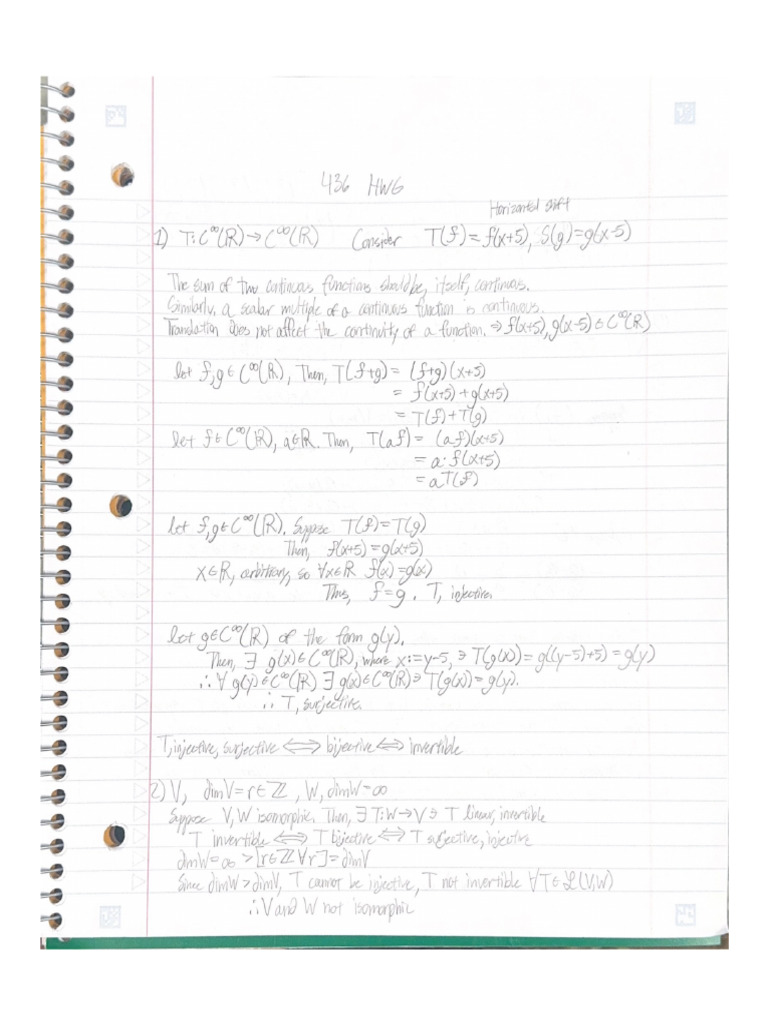 436 HW6
Horizontal shift
1) T: C^∞(ℝ) → C^∞(ℝ) Consider T(f) = f(x+5), S(g) = g(x-5)
The sum of two continuous functions should be, itself, continuous.
Similarly, a scalar multiple of a continuous function is continuous.
Translation does not affect the continuity of a function. ⇒ f(x+5), g(x-5) ∈ C^∞(ℝ)
let f,g ∈ C^∞(ℝ), Then, T(f+g) = (f+g)(x+5)
= f(x+5) + g(x+5)
= T(f) + T(g)
let f ∈ C^∞(ℝ), a ∈ ℝ. Then, T(af) = (af)(x+5)
= a·f(x+5)
= aT(f)
let f,g ∈ C^∞(ℝ). Suppose T(f) = T(g)
Then, f(x+5) = g(x+5)
x ∈ ℝ, arbitrary, so ∀x∈ℝ f(x) = g(x)
Thus, f = g. T, injective.
let g ∈ C^∞(ℝ) of the form g(y).
Then, ∃ g(x) ∈ C^∞(ℝ), where x := y-5, ∋ T(g(x)) = g((y-5)+5) = g(y)
∴ ∀ g(y) ∈ C^∞(ℝ) ∃ g(x) ∈ C^∞(ℝ) ∋ T(g(x)) = g(y).
∴ T, surjective.
T, injective, surjective ⟺ bijective ⟺ invertible
2) V, dimV = r ∈ ℤ, W, dimW = ∞
Suppose V, W isomorphic. Then, ∃ T: W → V ∋ T linear, invertible
T invertible ⟺ T bijective ⟺ T surjective, injective
dimW = ∞ > [r ∈ ℤ ∀r] = dimV
Since dimW > dimV, T cannot be injective, T not invertible ∀T ∈ ℒ(V,W)
∴ V and W not isomorphic